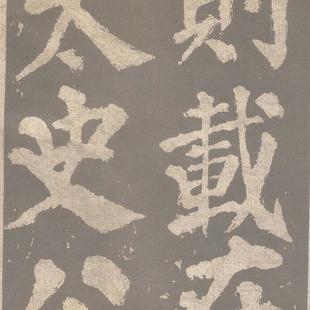 則載在
太史公